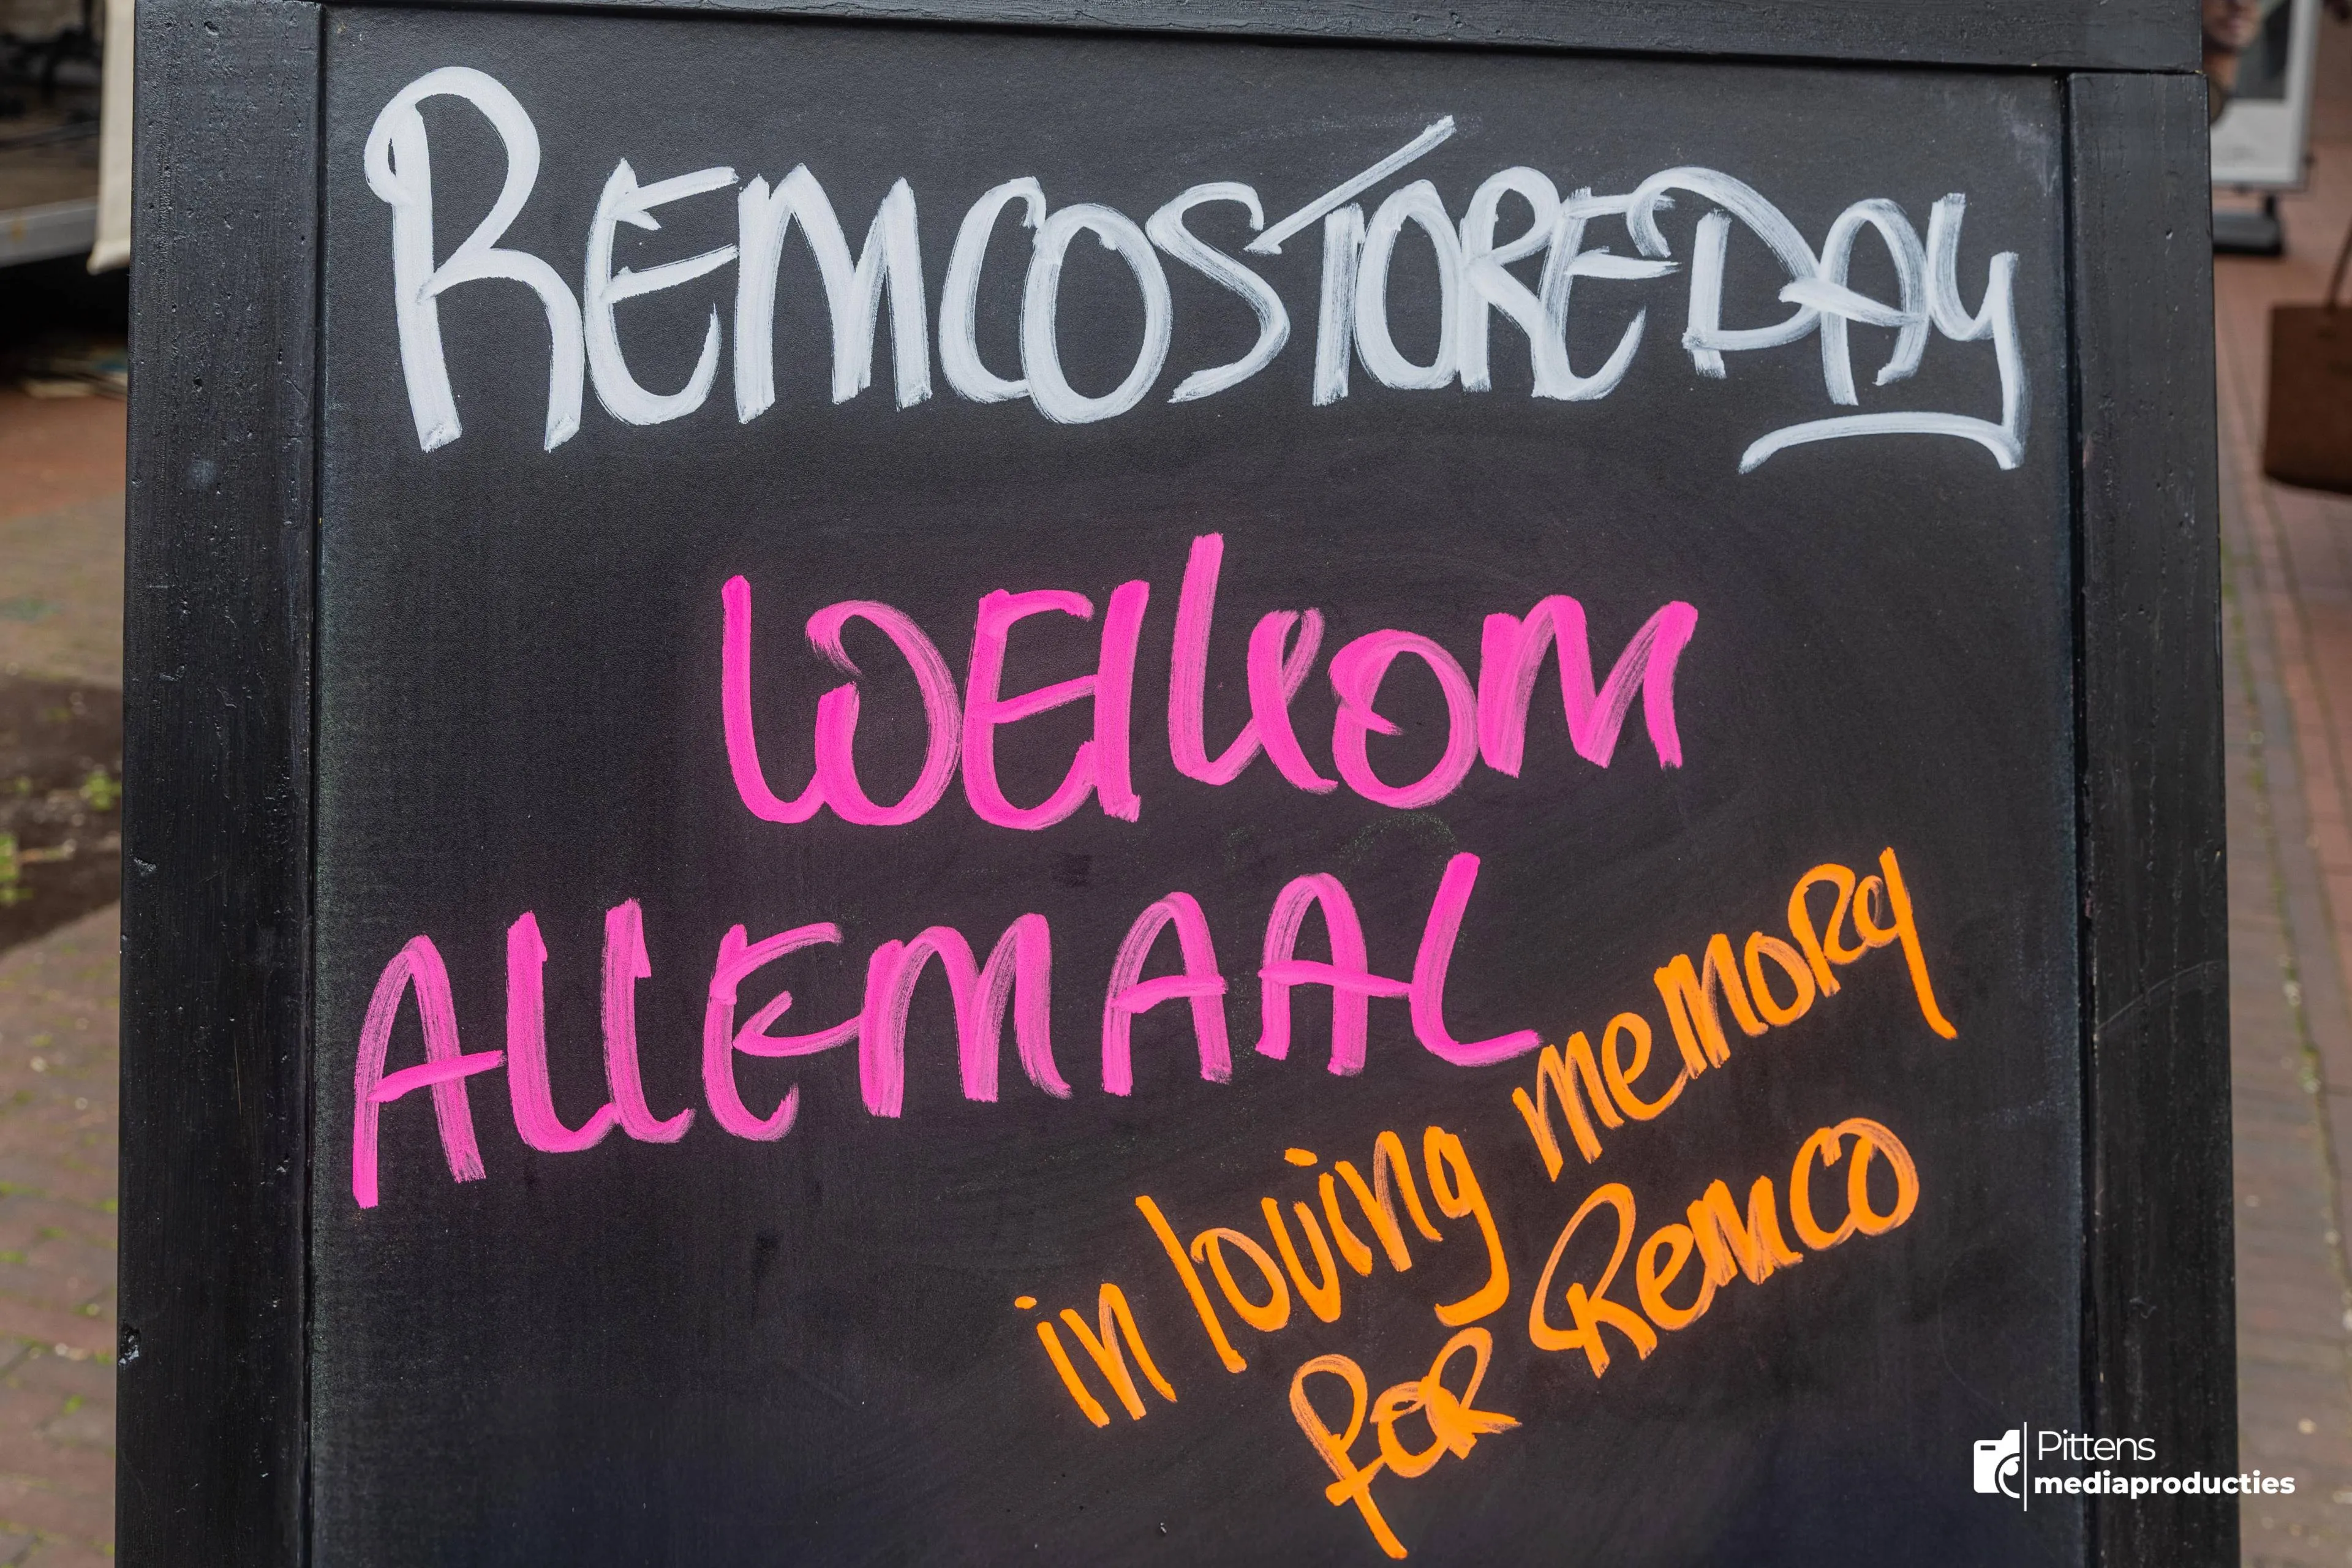 REMCOSTOREDAY
WElkOM
AllEMAAL
in loving memory
for Remco
Pittens
mediaproducties